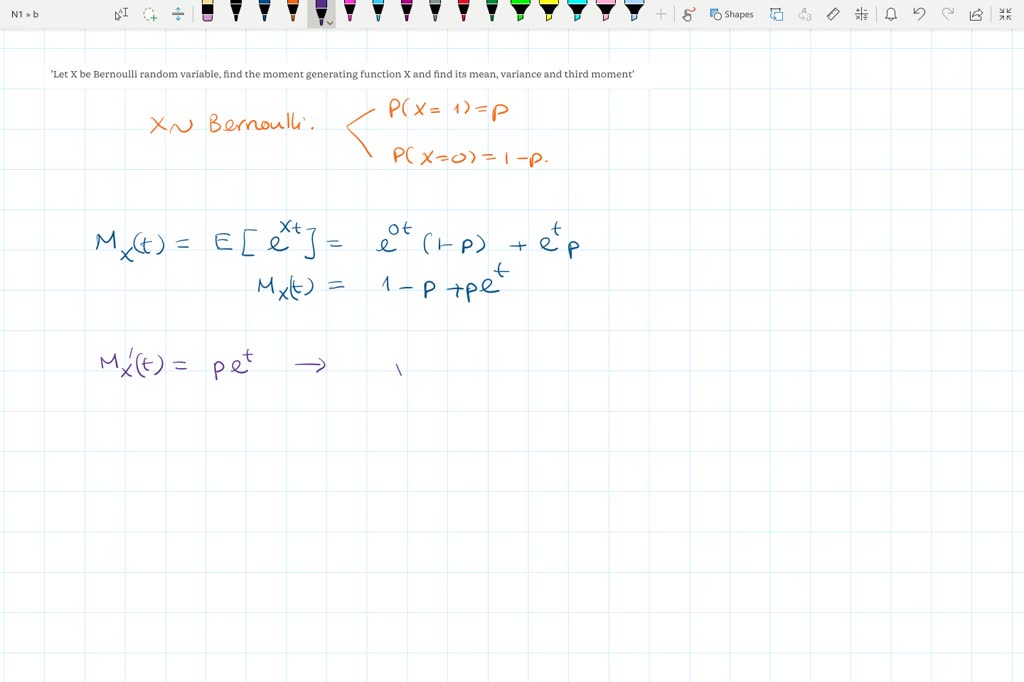 N1 » b
Shapes
'Let X be Bernoulli random variable, find the moment generating function X and find its mean, variance and third moment'
X ~ Bernoulli.
P(X = 1) = p
P(X=0) = 1-p.
M_X(t) = E[e^{Xt}] = e^{0t} (1-p) + e^t p
M_X(t) = 1 - p + pe^t
M_X'(t) = pe^t →